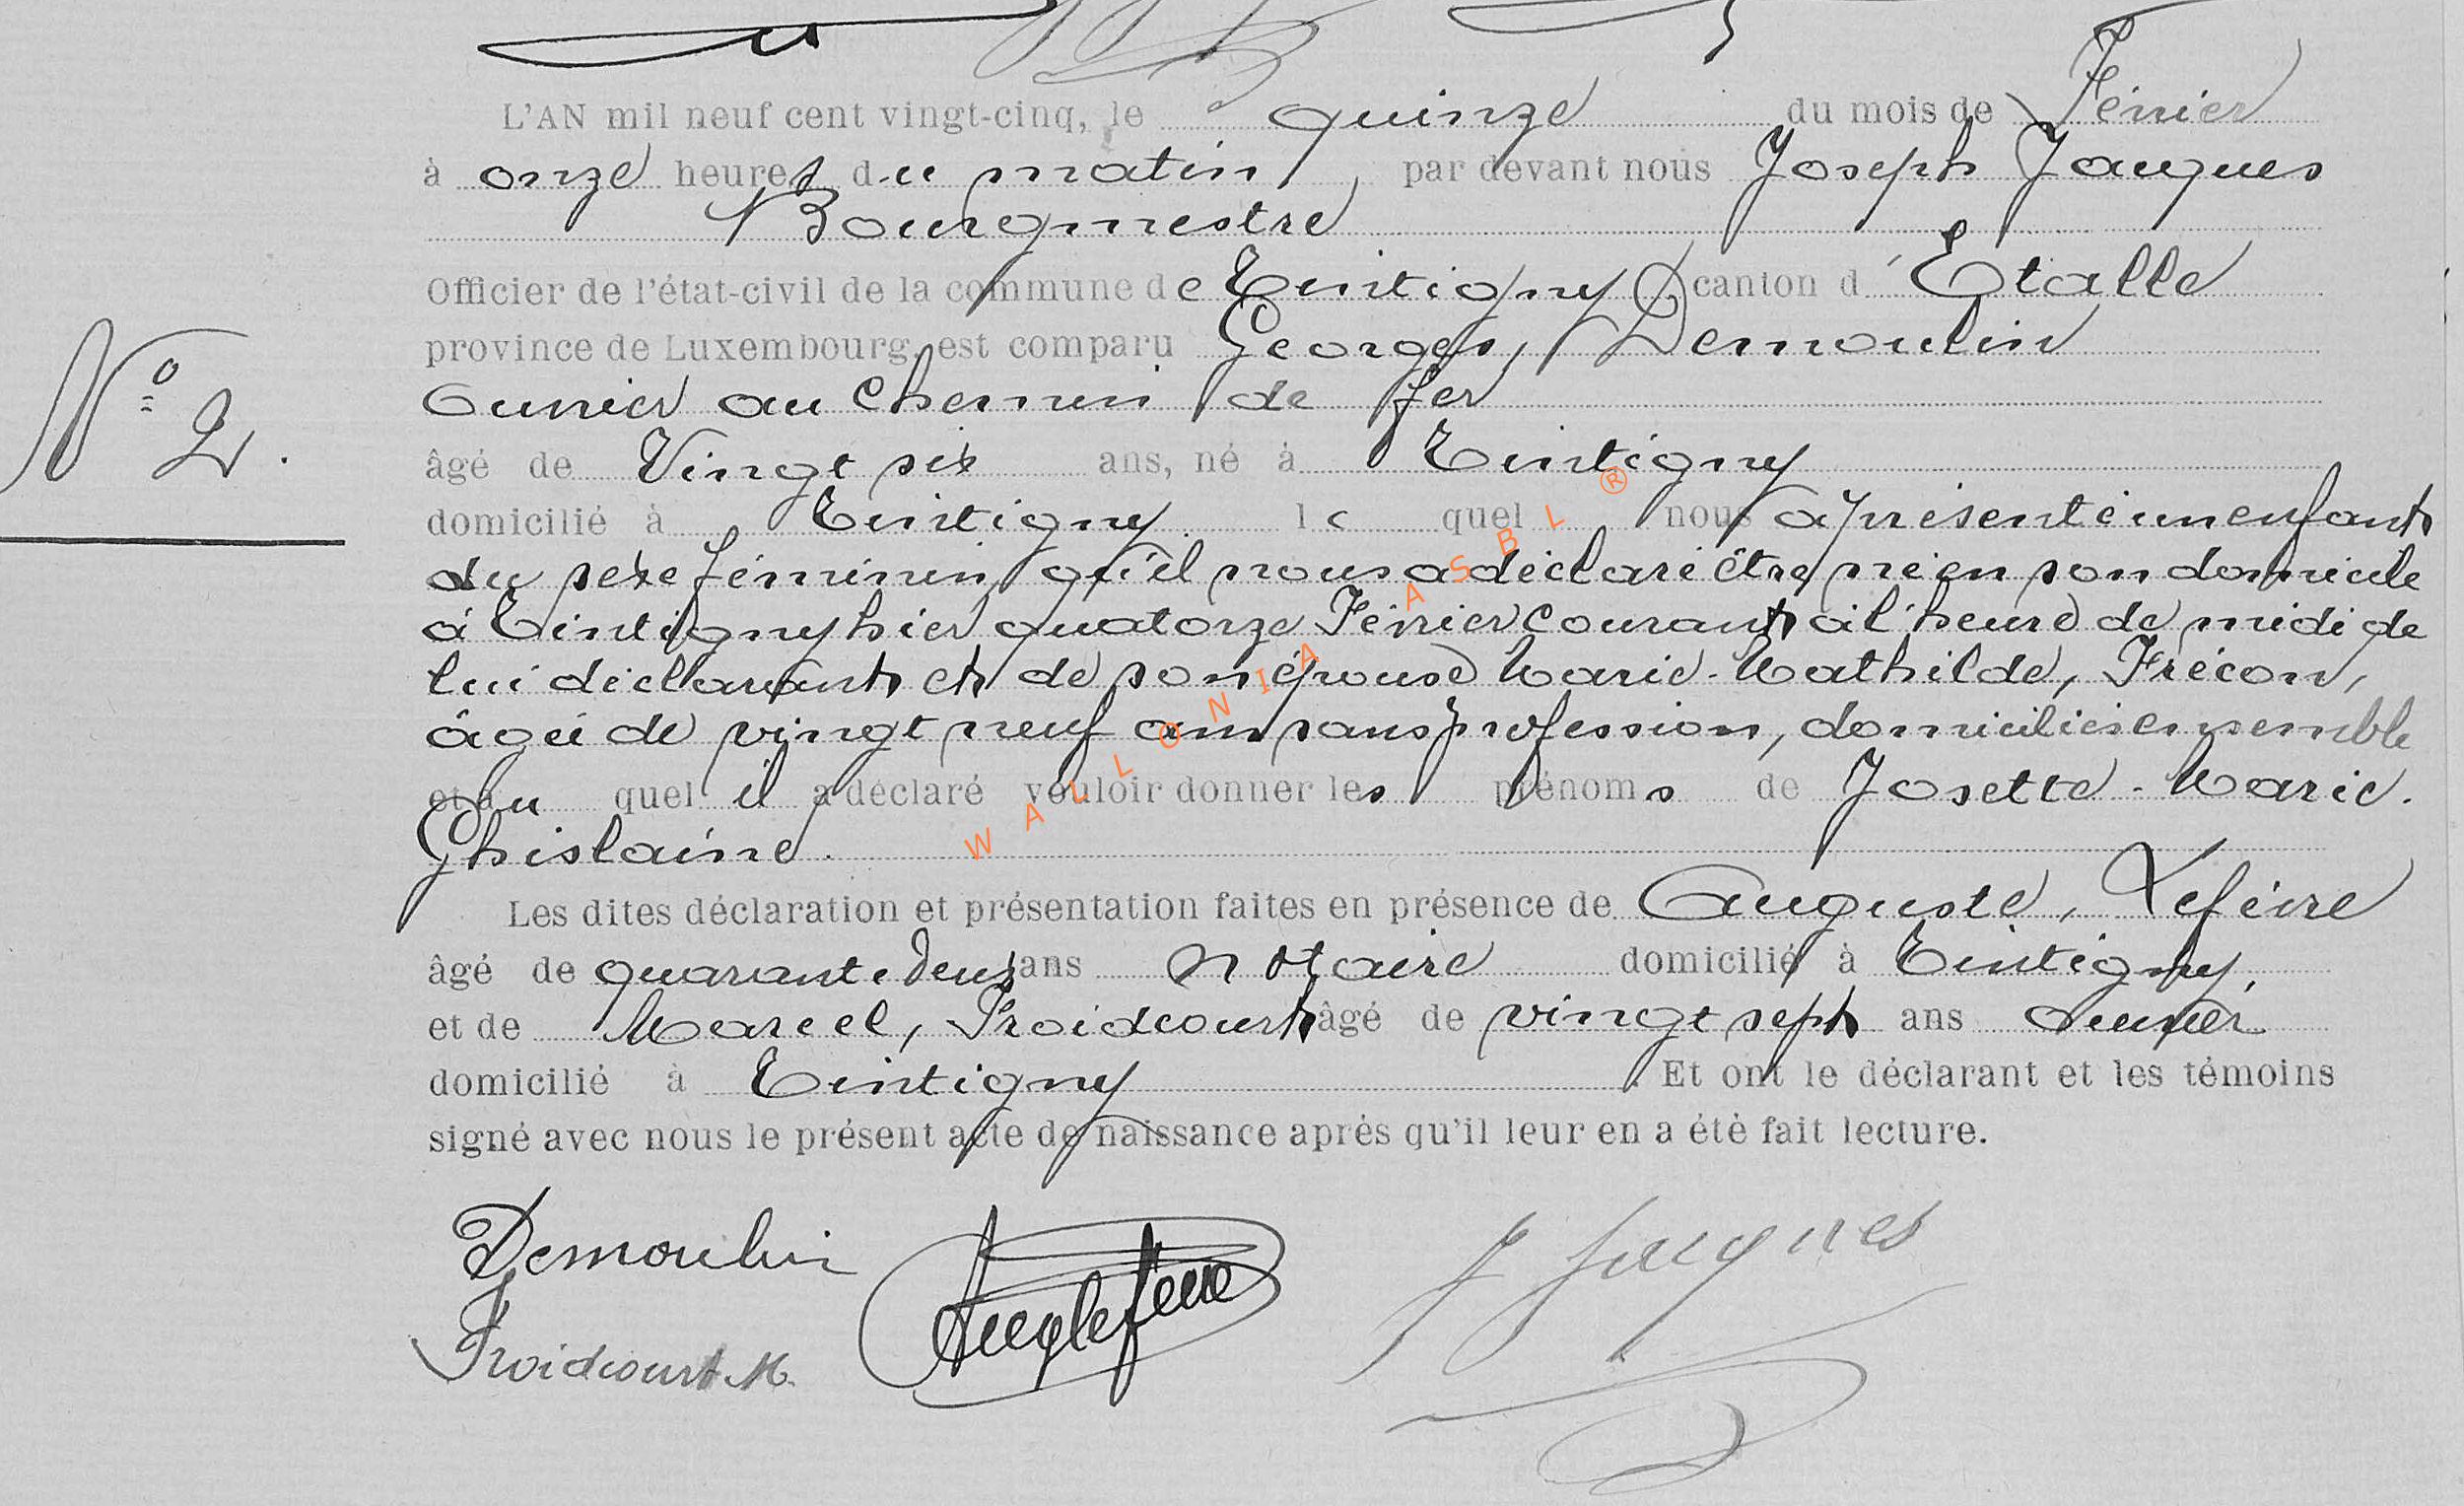 L'AN mil neuf cent vingt-cinq, le quinze du mois de Février
à onze heures du matin, par devant nous Joseph Jacques
Bourgmestre
Officier de l'état-civil de la commune de Tintigny canton d'Etalle
province de Luxembourg, est comparu Georges, Demoulin
Ouvrier au chemin de fer
N° 2.
âgé de Vingt six ans, né à Tintigny
domicilié à Tintigny. le quel nous a présenté un enfant
du sexe féminin, qu'il nous a déclaré être né en son domicile
à Tintigny hier quatorze Février courant à l'heure de midi de
lui déclarant et de son épouse Marie-Mathilde, Frécon,
âgée de vingt neuf ans sans profession, domiciliés ensemble
et au quel il a déclaré vouloir donner les prénoms de Josette-Marie-
Ghislaine.
Les dites déclaration et présentation faites en présence de Auguste, Lefèvre
âgé de quarante deux ans notaire domicilié à Tintigny,
et de Marcel, Froidcourt âgé de vingt sept ans
domicilié à Tintigny. Et ont le déclarant et les témoins
signé avec nous le présent acte de naissance après qu'il leur en a été fait lecture.
Demoulin Auglefevre J Jacques
Froidcourt M.
WALLONIA ASBL ®